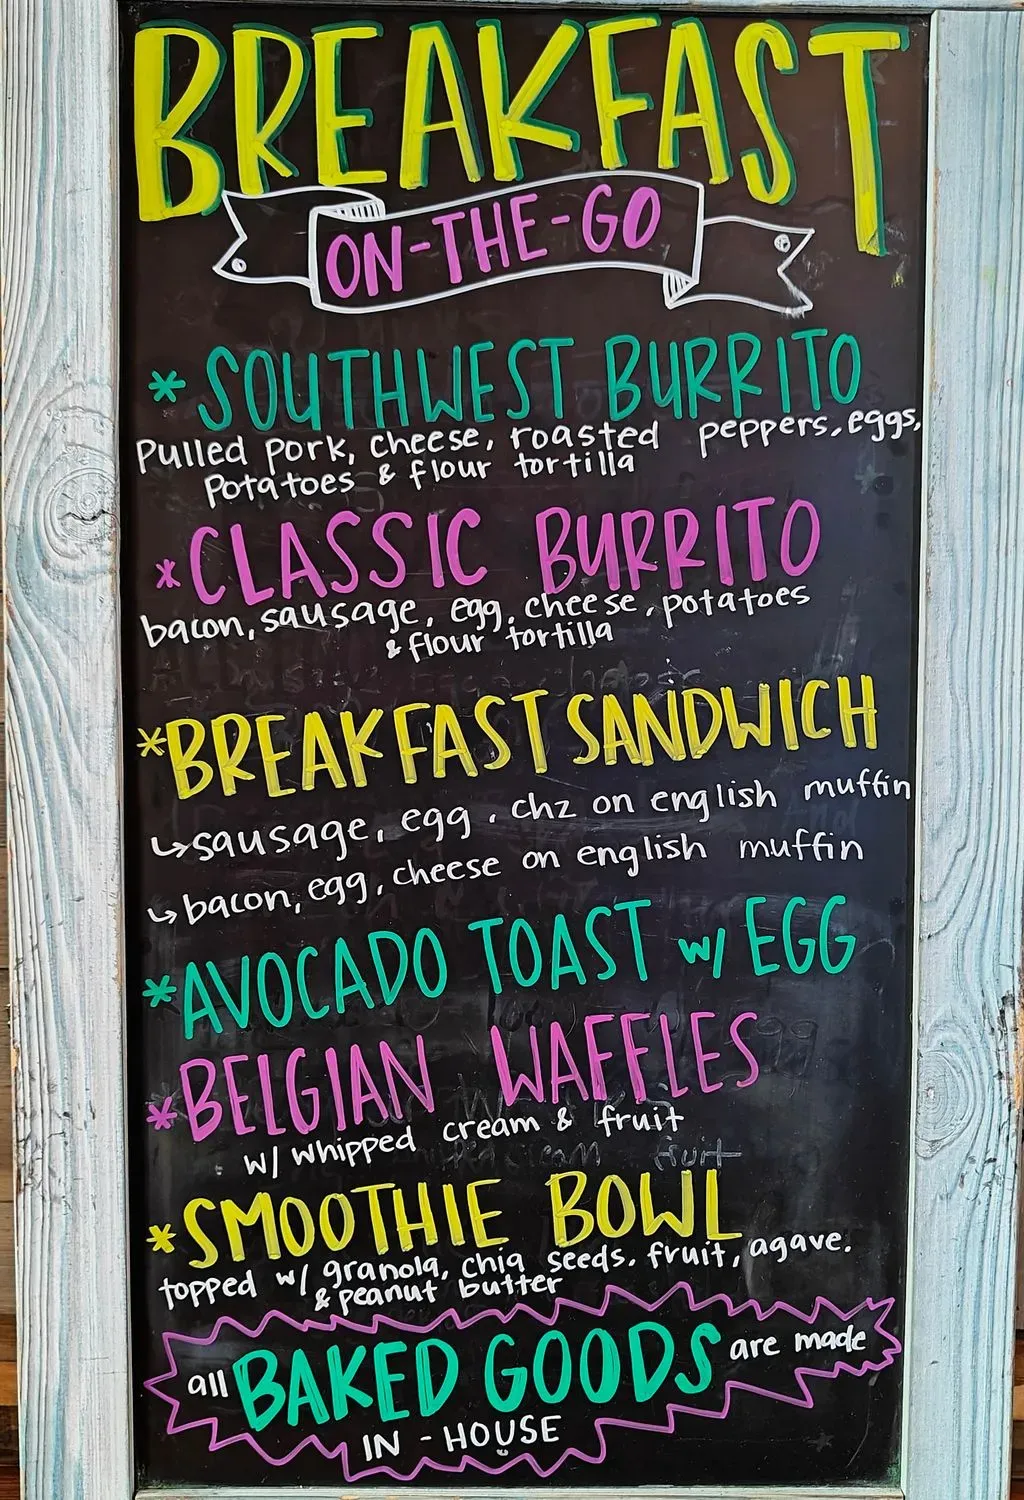 BREAKFAST
ON-THE-GO
* SOUTHWEST BURRITO
Pulled pork, cheese, roasted peppers, eggs,
Potatoes & flour tortilla
* CLASSIC BURRITO
bacon, sausage, egg, cheese, potatoes
& flour tortilla
* BREAKFAST SANDWICH
↳ sausage, egg, chz on english muffin
↳ bacon, egg, cheese on english muffin
* AVOCADO TOAST w/ EGG
* BELGIAN WAFFLES
w/ whipped cream & fruit
* SMOOTHIE BOWL
topped w/ granola, chia seeds, fruit, agave.
& peanut butter
all BAKED GOODS are made
IN - HOUSE